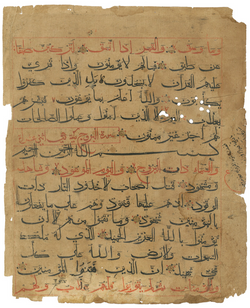 وما وسق والقمر إذا اتسق لتركبن طبقا
عن طبق فما لهم لا يؤمنون وإذا قرئ
عليهم القرآن لا يسجدون بل الذين كفروا
يكذبون والله أعلم بما يوعون فبشرهم
بعذاب أليم إلا الذين آمنوا وعملوا الصالحات
لهم أجر غير ممنون سورة البروج
بسم الله الرحمن الرحيم
والسماء ذات البروج واليوم الموعود وشاهد
ومشهود قتل أصحاب الأخدود النار ذات
الوقود إذ هم عليها قعود وهم على ما يفعلون
بالمؤمنين شهود وما نقموا منهم إلا أن
يؤمنوا بالله العزيز الحميد الذي له ملك
السموات والأرض والله على كل
شيء شهيد إن الذين فتنوا المؤمنين
والمؤمنات ثم لم يتوبوا فلهم